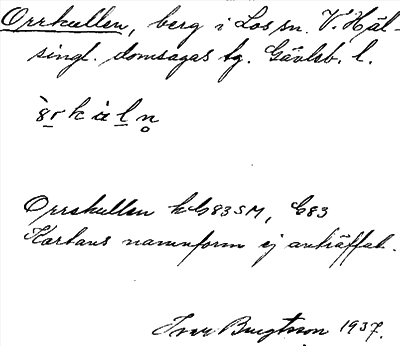 Orrkullen, berg i Los sn. V. Häl-
singl. domsagas tg. Gävleb. l.
Orrskullen kG83SM, G83
Kartans namnform ej anträffad.
Ivar Bengtsson 1937.